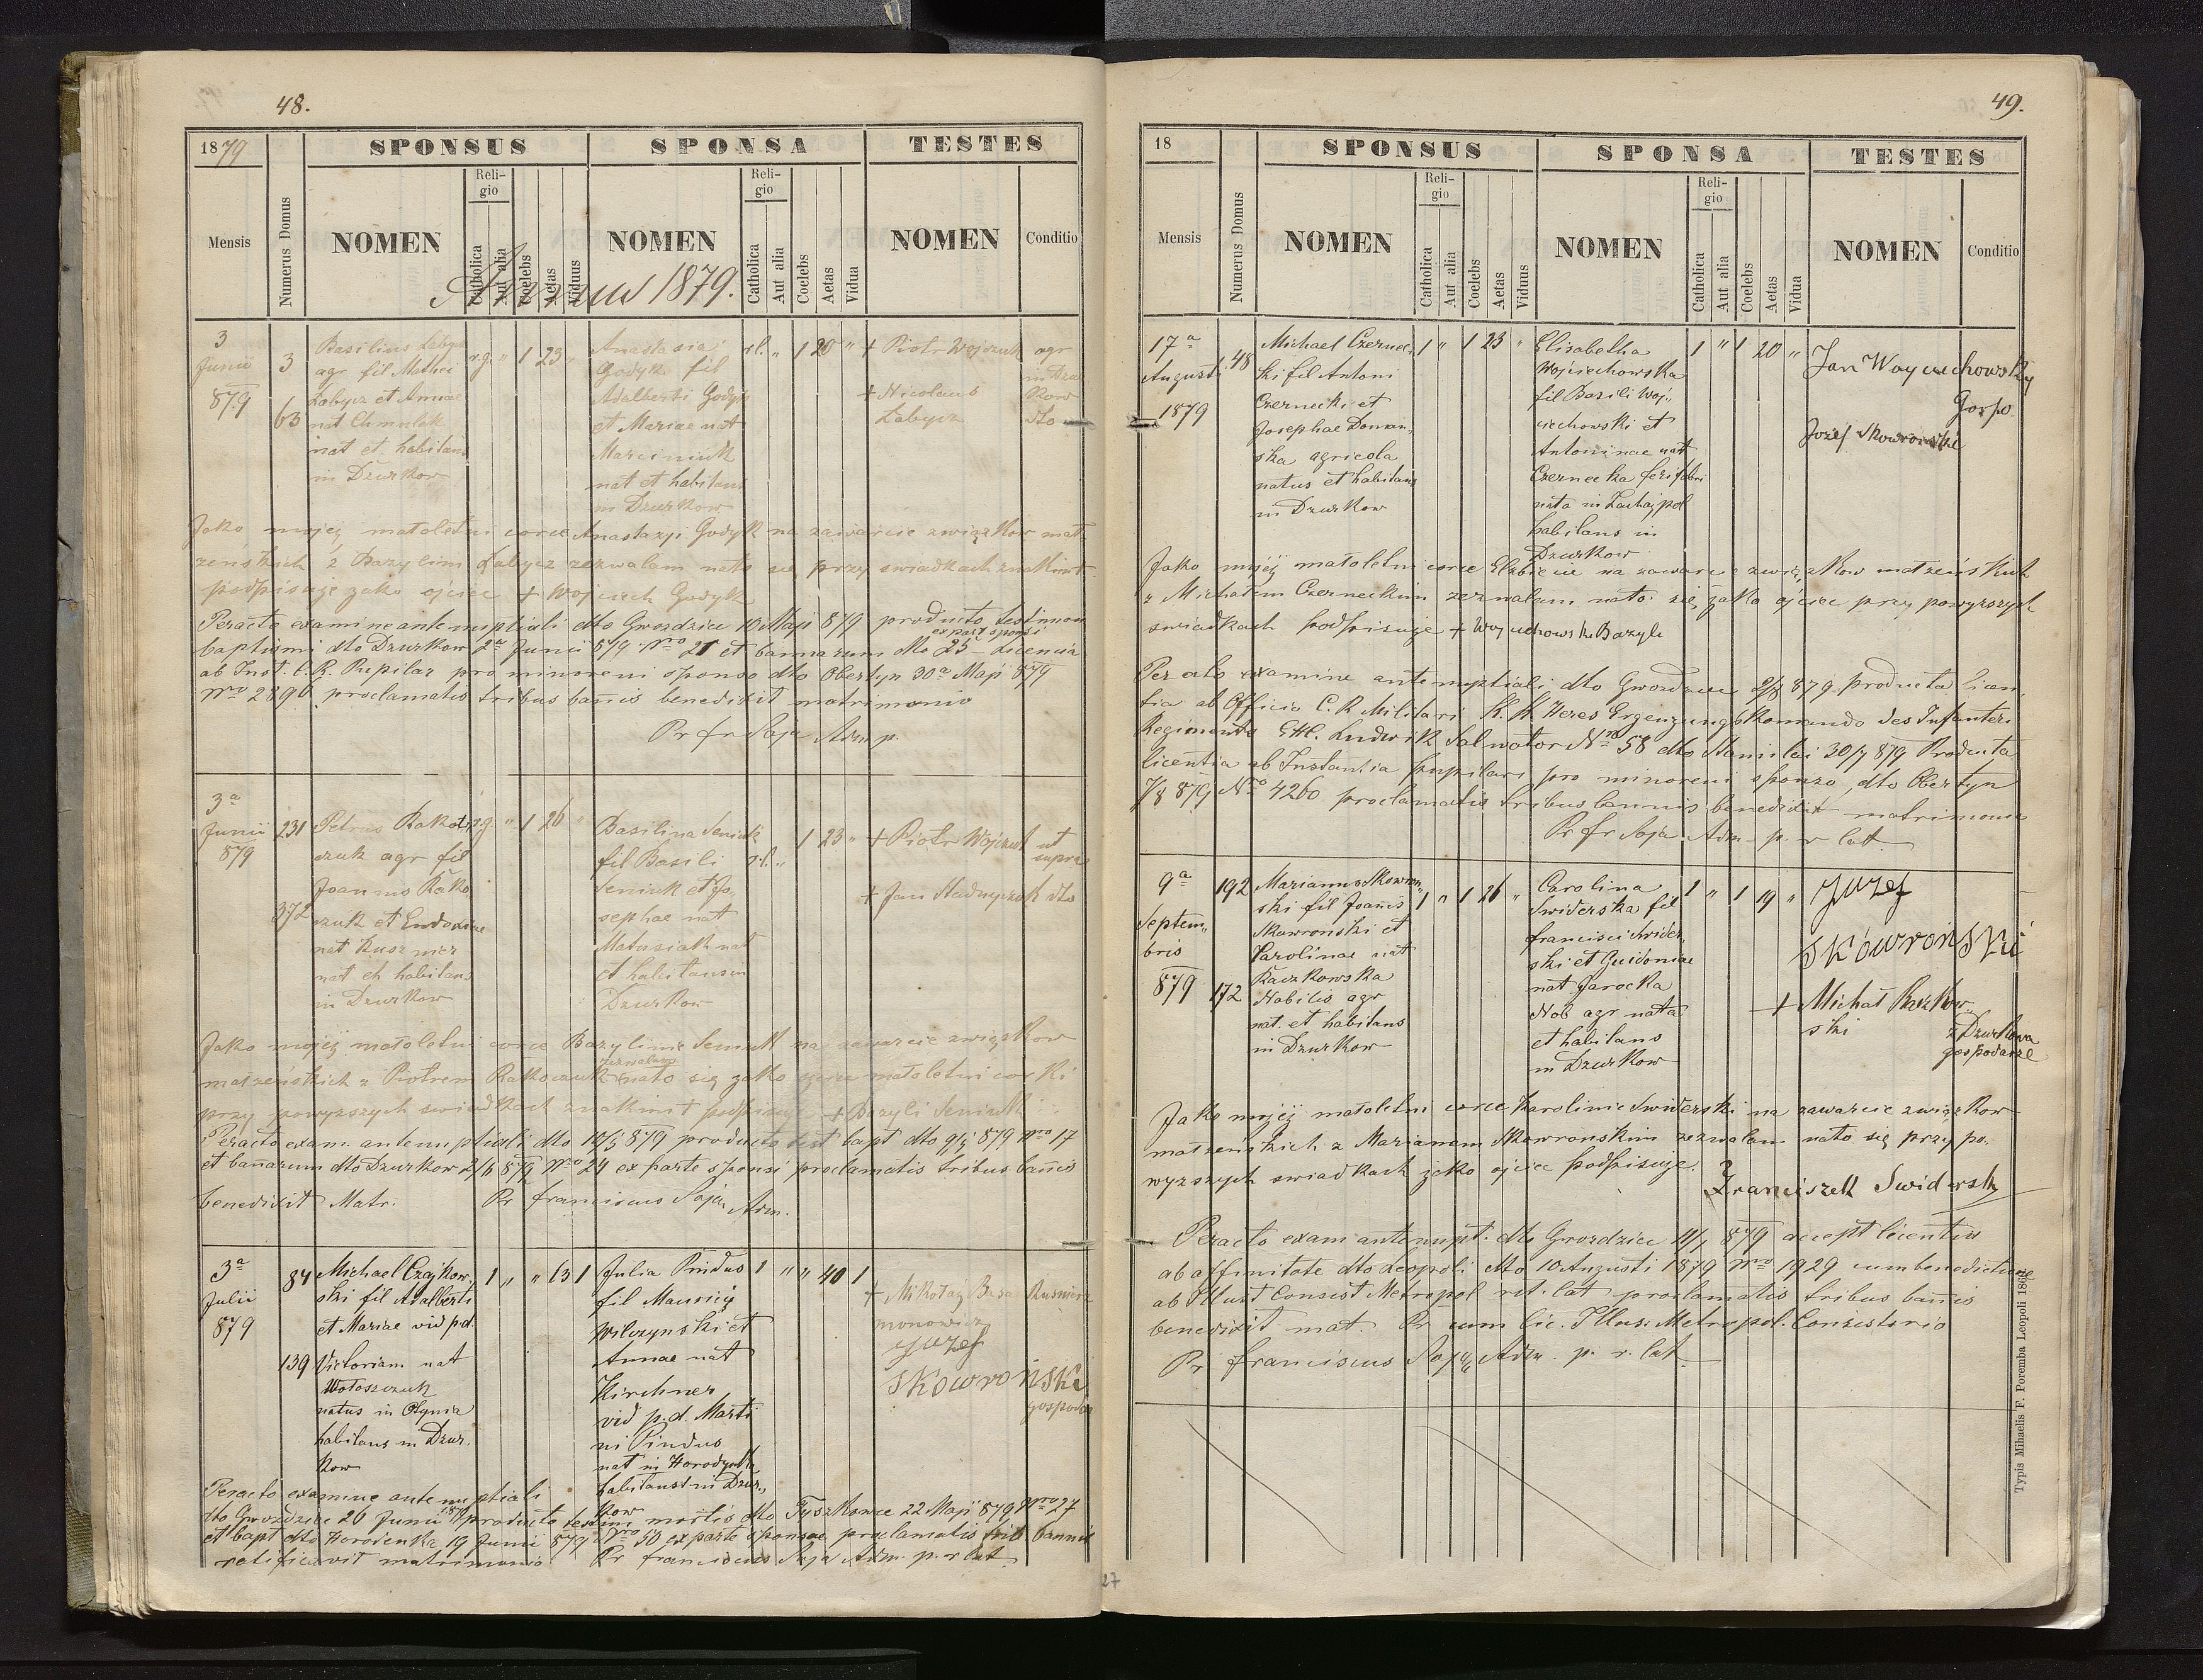 48.
1879
SPONSUS
SPONSA
TESTES
Mensis
Numerus Domus
NOMEN
Religio
Catholica
Aut alia
Coelebs
Aetas
Viduus
NOMEN
Religio
Catholica
Aut alia
Coelebs
Aetas
Vidua
NOMEN
Conditio
Annus 1879.
3
Junii
879
3
63
Basilius Łabycz
agr fil Mathei
Łabycz et Annae
nat Chmelak
nat et habitans
in Dzurkow
r.g. „ 1 23 „
Anastasia
Godyk fil
Adalberti Godyk
et Mariae nat
Marciniuk
nat et habitans
in Dzurkow
r.l. „ 1 20 „
+ Piotr Wojczuk agr
in Dzur
kow
+ Nicolaus
Łabycz dto
Jako mojej małoletni corce Anastazyi Godyk na zawarcie związkow mał
żeńskich z Bazylim Łabycz zezwalam nato się przy swiadkach znakiem +
podpisuje jako ojciec + Wojciech Godyk
Peracto examine antenuptiali dto Gwozdziec 10 Maji 879 producto testimon
ex part sponsi
baptismi dto Dzurkow 2a Junii 879 Nro 21 et bannarum dto 25 Licencia
ab Inst. C. R. Pupilar pro minoreni sponso dto Obertyn 30a Maji 879
Nro 2890 proclamatis tribus bannis benedixit matrimonio
Pr fr Soja Adm p.
3a
Junii
879
231
372
Petrus Rako
czuk agr fil
Joannis Rako
czuk et Eudoxiae
nat Kusznier
nat et habitans
in Dzurkow
r.g. „ 1 26 „
Basilina Seniuk
fil Basili
Seniuk et Jo
sephae nat
Matusiak nat
et habitans in
Dzurkow
r.l. „ 1 23 „
+ Piotr Wojczuk ut
supra
+ Jan dto
Jako mojej małoletni corce Bazylinie Seniuk na zawarcie związkow
zezwalam
małzeńskich z Piotrem Rakoczuk nato się jako ojciec małoletni corki
przy powyzszych swiadkach znakiem + podpisuje + Bazyli Seniuk
Peracto exam. antenuptiali dto 12/5 879 producto test bapt dto 9/5 879 Nro 17
et bannarum dto Dzurkow 2/6 879 Nro 24 ex parte sponsi proclamatis tribus bannis
benedixit Matr. Pr franciscus Soja Adm.
3a
Julii
879
84
139
Michael Czajkow
ski fil Adalberti
et Mariae vid p.d.
Victoriam nat
Wołoszczuk
natus in Olynia
habitans in Dzur
kow
1 „ „ 63 1
Julia Pindus
fil Mauricij
Wilczynski et
Annae nat
Kirchner
vid p.d. Marti
ni Pindus
nat in Horodynka
habitans in Dzur„
kow
1 „ „ 40 1
+ Mikołaj Basa Kusnierz
monowicz
Juzef
Skowroński
gospodar
Peracto examine antenuptiali
dto Gwozdziec 26 Junii 1879 producto testim mortis dto Tyszkowce 22 Maji 879 Nro 27
et bapt dto Horodenka 19 Junii 879 Nro 50 ex parte sponsae proclamatis trib bannis
ratificavit matrimonio Pr franciscus Soja Adm. p. r lat.
49.
18
SPONSUS
SPONSA
TESTES
Mensis
Numerus Domus
NOMEN
Religio
Catholica
Aut alia
Coelebs
Aetas
Viduus
NOMEN
Religio
Catholica
Aut alia
Coelebs
Aetas
Vidua
NOMEN
Conditio
17a
Augusti
1879
48
Michael Czernec„
ki fil Antoni
Czernecki et
Josephae Doman„
ska agricola
natus et habitans
in Dzurkow
1 „ 1 23 „
Elisabetha
Wojciechowska
fil Basili Woj„
ciechowski et
Antoninae nat
Czernecka ferifabri
nata in Luchajpol
habitans in
Dzurkow
1 „ 1 20 „
Jan Woyciechowsky
Gospo.
Jozef Skowronski
Jako mojej małoletni corce Elżbiecie na zawarcie związkow małzeńskich
z Michałem Czerneckim zezwalam nato się jako ojciec przy powyzszych
swiadkach podpisuje + Wojciechowski Bazyli
Peracto examine antenuptiali dto Gwozdziec 2/8 879. producta licen„
tia ab Officio C. R Militari K. K. Heres Ergenzungs Komando des Infanteri
Regiments EH. Ludwik Salwator Nro 58 dto Stanislai 30/7 879 Producta
licentia ab Instantia pupilari pro minoreni sponza, dto Obertyn
7/8 879 Nro 4260 proclamatis tribus bannis benedixit matrimonio
Pr fr Soja Adm p. r lat.
9a
Septem„
bris
879
192
172
Marianus Skowron„
ski fil Joannis
Skowronski et
Karolinae nat
Raczkowska
Nobilis agr
nat. et habitans
in Dzurkow
1 „ 1 26 „
Carolina
Swiderska fil
francisci Swider„
ski et Guidoniae
nat Jarocka
Nob agr nata
et habitans
in Dzurkow
1 „ 1 19 „
Juzef
Skówroński
+ Michał Raczkow„
ski z Dzurkowa
gospodarze
Jako mojej małoletni corce Karolinie Swiderski na zawarcie związkow
małzeńskich z Marianem Skowronskim zezwalam nato się przy po„
wyzszych swiadkach jako ojciec podpisuje.
Franciszek Swidersky
Peracto exam antenupt. dto Gwozdziec 11/7 879 accept licentia
ab affinitate dto Leopoli dto 10 Augusti 1879 Nro 1929 cum benedictione
ab Illust Consist Metropol rit. lat proclamatis tribus bannis
benedixit mat. Pr cum lic. Illus. Metropol. Consistorio
Pr franciscus Soja Adm. p. r. lat.
Typis Mihaelis F. Poremba Leopoli 186
27